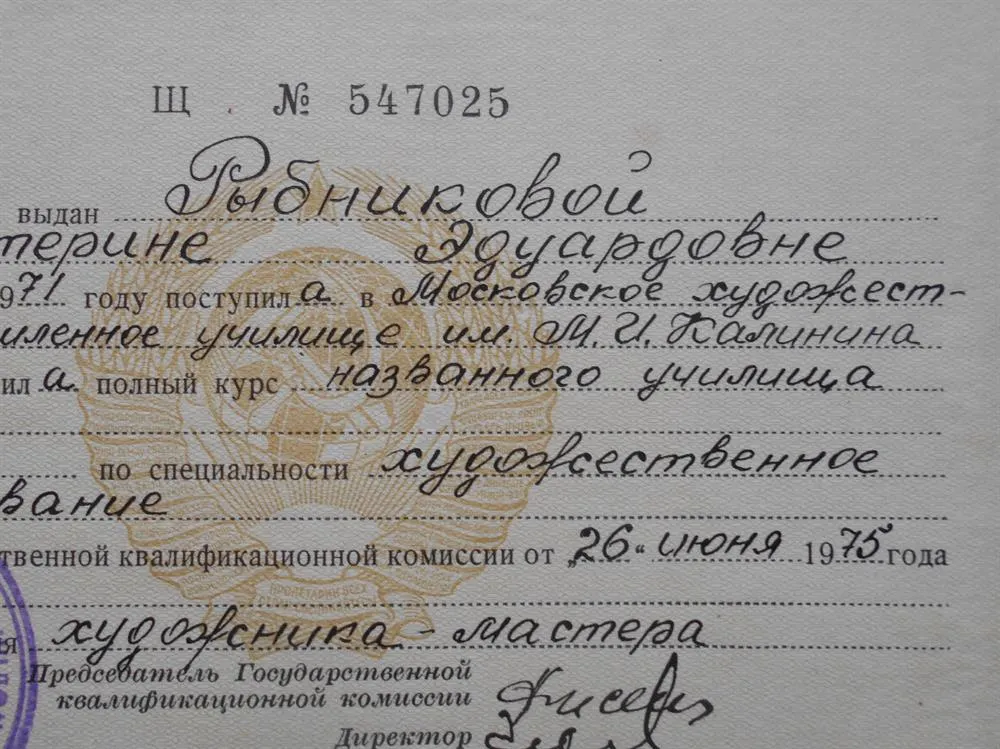 Щ № 547025
выдан Рыбниковой
терине Эдуардовне
971 году поступила в Московское художест-
мленное училище им. М. И. Калинина
ила полный курс названного училища
по специальности художественное
вание
твенной квалификационной комиссии от „26" июня 1975 года
я художника-мастера
Председатель Государственной
квалификационной комиссии
Директор